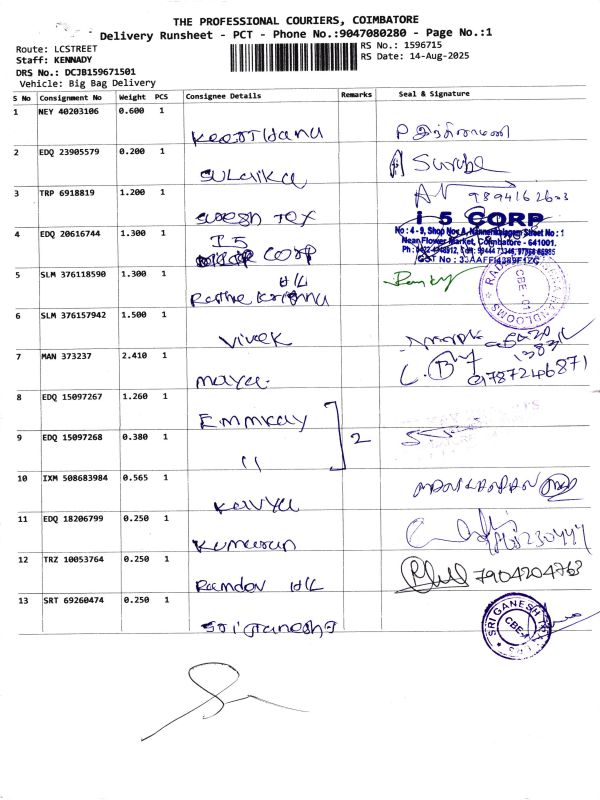 THE PROFESSIONAL COURIERS, COIMBATORE
Delivery Runsheet - PCT - Phone No.:9047080280 - Page No.:1
Route: LCSTREET
Staff: KENNADY
DRS No.: DCJB159671501
Vehicle: Big Bag Delivery
RS No.: 1596715
RS Date: 14-Aug-2025
S No Consignment No Weight PCS Consignee Details Remarks Seal & Signature
1 NEY 40203106 0.600 1
2 EDQ 23905579 0.200 1 Sulaika
3 TRP 6918819 1.200 1 Suresh Tex 9894162603
4 EDQ 20616744 1.300 1 I5 Corp
i 5 CORP
5 SLM 376118590 1.300 1 Radha Krishna H/L
6 SLM 376157942 1.500 1 Vivek
7 MAN 373237 2.410 1 Maya 9787246871
8 EDQ 15097267 1.260 1 Emmkay
2
9 EDQ 15097268 0.380 1 11
10 IXM 508683984 0.565 1 Kavya
11 EDQ 18206799 0.250 1 Kumaran
12 TRZ 10053764 0.250 1 Ramdev H/L 7904204763
13 SRT 69260474 0.250 1 Sri Ganesha
SRI GANESH
CBE